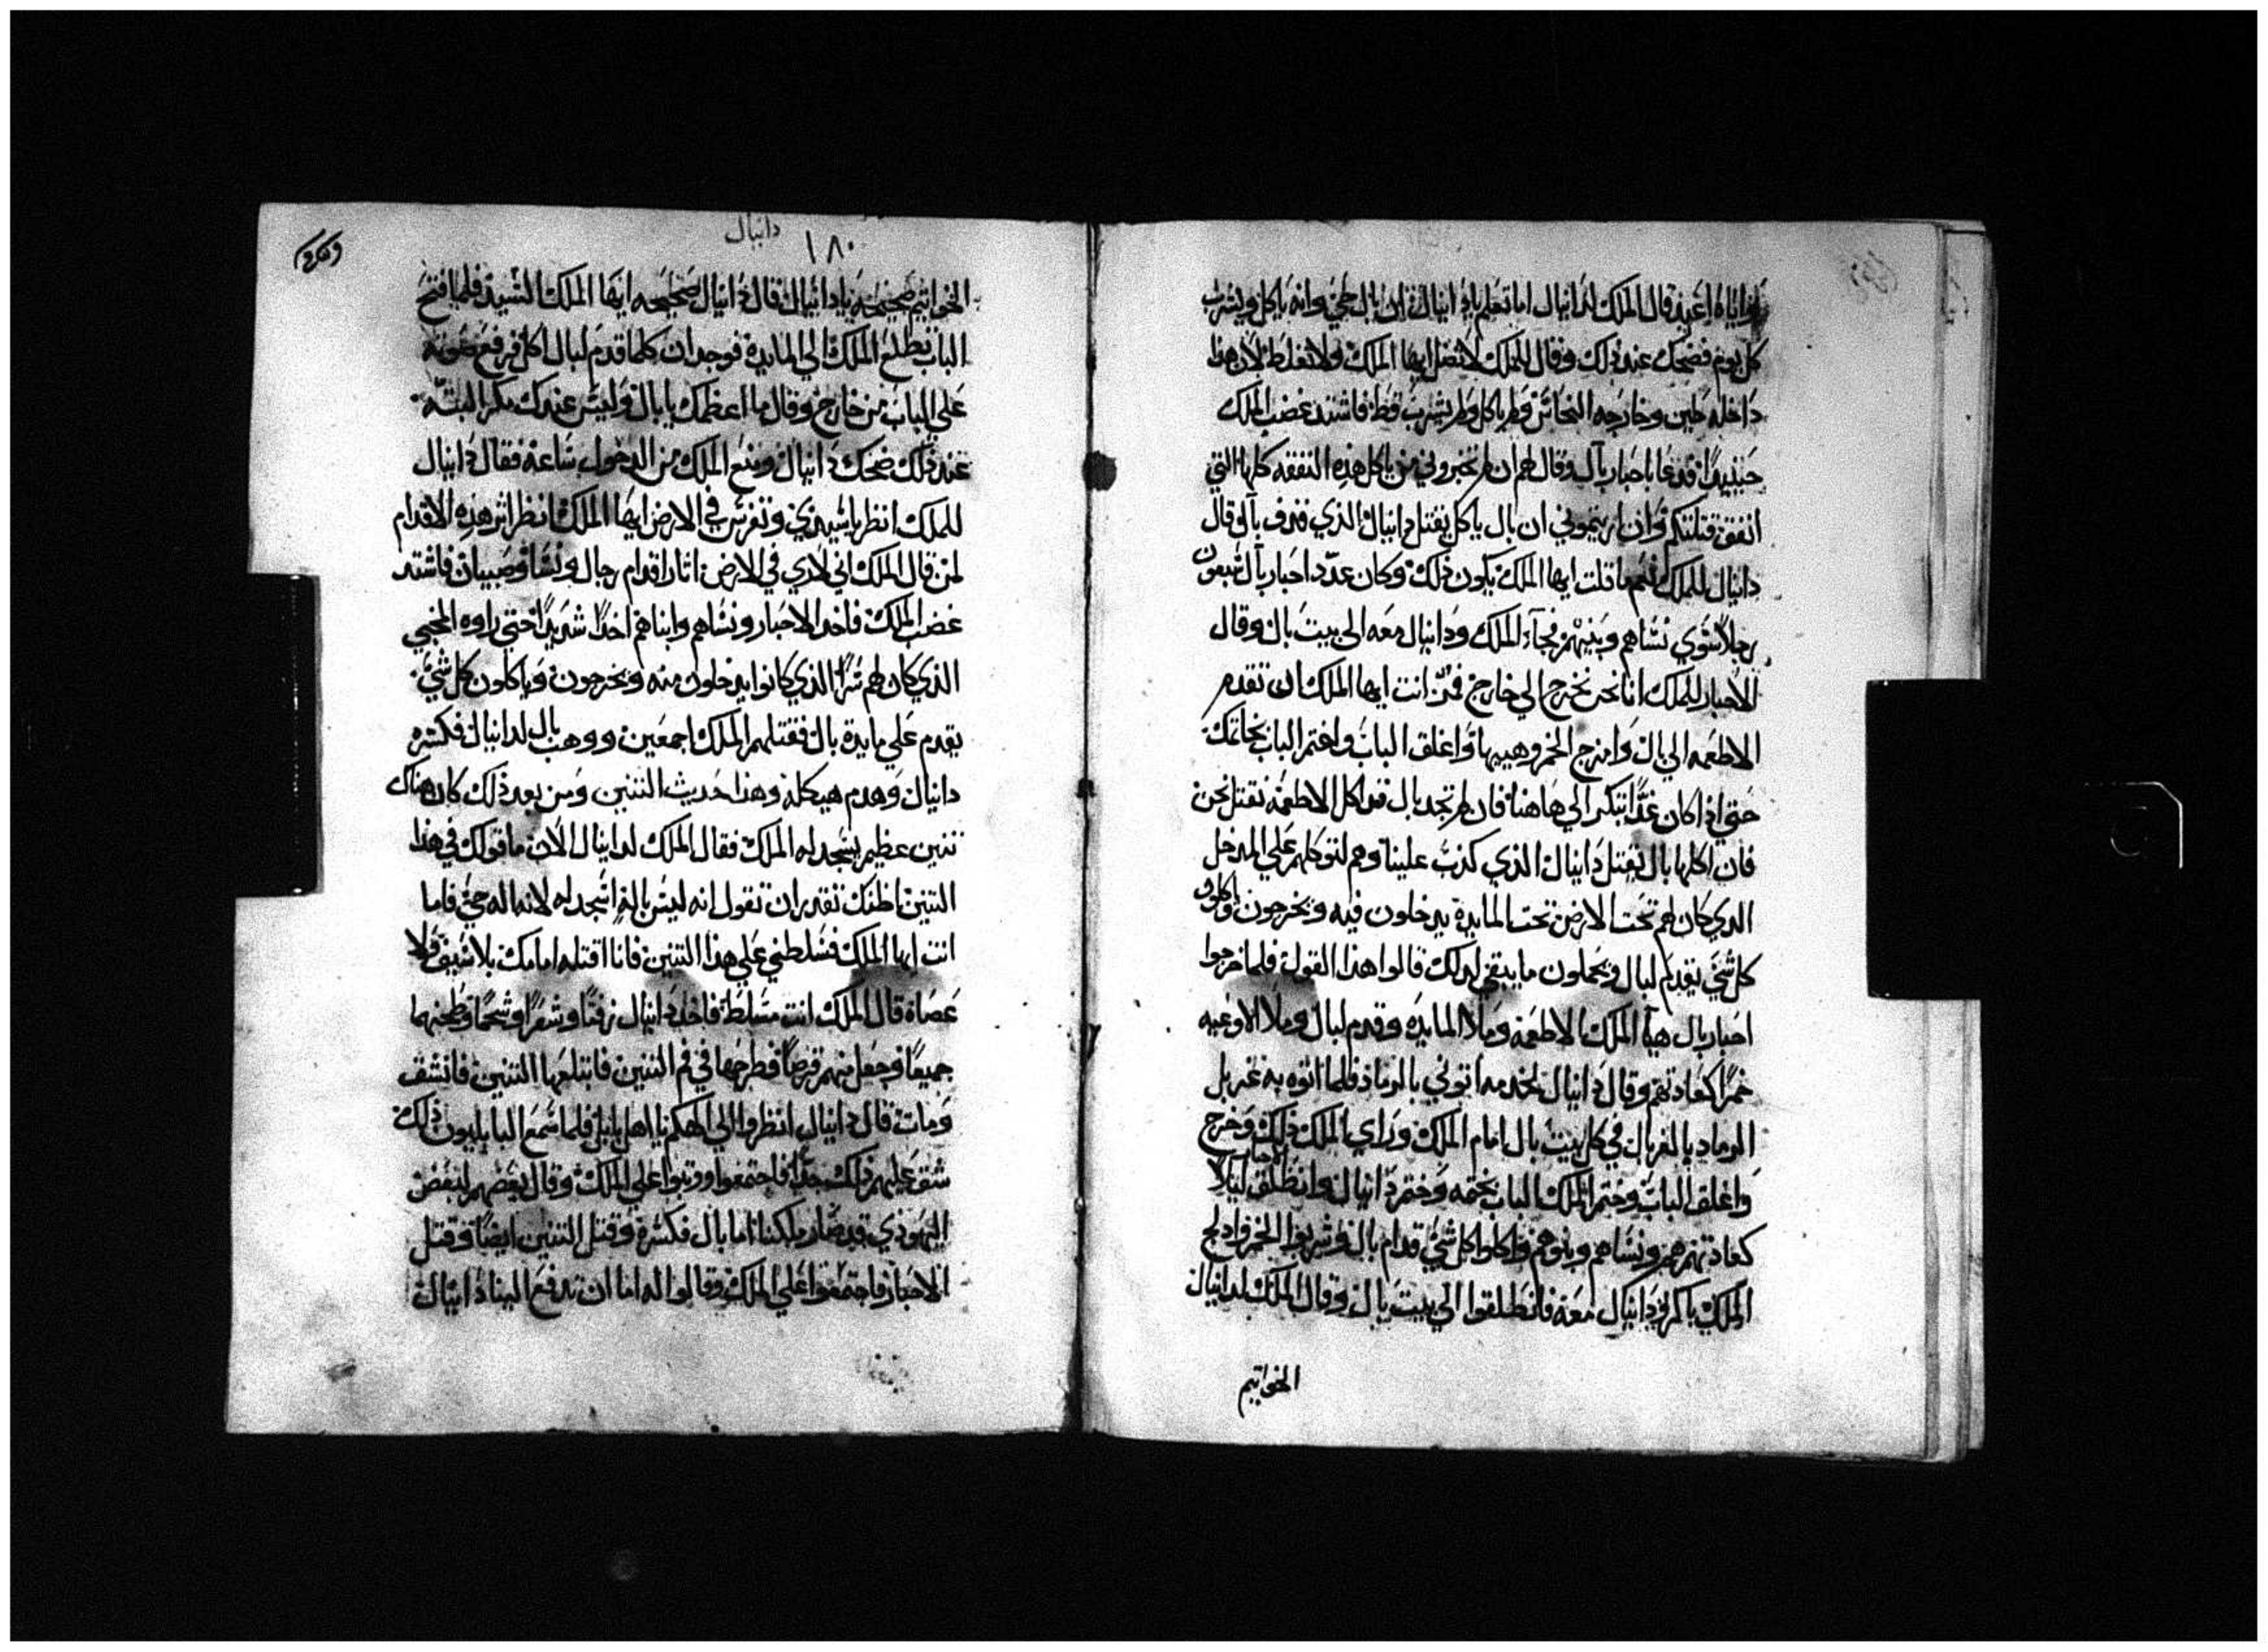 واياه اعبد قال الملك لدانيال اما تعلم يا دانيال ان بال حي وانه ياكل ويشرب
كل يوم فضحك عند ذلك وقال للملك لا تضل ايها الملك ولا تغلط لان هذا
داخله طين وخارجه النحاس ولم ياكل ولم يشرب قط فاشتد غضب الملك
حينيدًا فدعا باحبار بآل وقال لهم ان لم تخبروني من ياكل هذه النفقه كلها التي
انفق قتلتكم وان اريتموني ان بال ياكل يقتل دانيال الذي قذف بآل وقال
دانيال للملك نعم ما قلت ايها الملك يكون ذلك وكان عدد احبار بآل سبعون
رجلاً سوي نساهم وبنيهم فجآء الملك ودانيال معه الي بيت بال وقال
الاحبار للملك انا نحن نخرج الي خارج فمر انت ايها الملك ان تقدم
الاطعمه الي بال وامزج الخمر وهييها واغلق الباب واختم الباب بخاتمك
حتي اذا كان غدًا تبتكر الي هاهنا فان لم تجد بال قد اكل الاطعمه نقتل نحن
فان اكلها بال يقتل دانيال الذي كذب علينا وهم لتوكلهم علي المدخل
الدي كان لهم تحت الارض تحت المايدة يدخلون فيه ويخرجون واكلون
كل شي يقدم لبال ويحملون ما يبقي لدلك قالوا هذا القول فلما خرجوا
احبار بال هيا الملك الاطعمه وملا المايده وقدم لبال وملا الاوعيه
خمرًا كعادتهم وقال دانيال لخدمه اتوني بالرماد فلما اتوه به غربل
الرماد بالغربال في كل بيت بال امام الملك وراي الملك ذلك وخرج
واغلق الباب وختم الملك الباب بختمه وختم دانيال وانطلق الاحبار ليلاً
كعادتهم هم ونساهم وبنوهم واكلوا كل شي قدام بال وشربوا الخمر وادلج
الملك باكر ودانيال معه فانطلقوا الي بيت بال وقال الملك لدانيال
الخواتيم
دانيال
١٨٠
الخواتيم صحيحه يا دانيال قال دانيال صحيحه ايها الملك السيد فلما افتتح
الباب تطلع الملك الي المايدة فوجد ان كلما قدم لبال اكل فرفع صوته
علي الباب من خارج وقال ما اعظمك يا بال وليس عندك مكر البته
عند ذلك ضحك دانيال ومنع الملك من الدخول ساعة فقال دانيال
للملك انظر يا سيدي وتفرس في الارض ايها الملك انظر اثر هذه الاقدام
لمن قال الملك اني لاري في الارض اثار اقدام رجال ونسا وصبيان فاشتد
غضب الملك فاخد الاحبار ونساهم وابناهم اخدًا شديدًا حتي راوه المخبي
الذي كان لهم سرًا الذي كانوا يدخلون منه ويخرجون وياكلون كل شي
يقدم علي مايدة بال فقتلهم الملك اجمعين ووهب بال لدانيال فكسره
دانيال وهدم هيكله وهذا حديث التنين ومن بعد ذلك كان هناك
تنين عظيم يسجد له الملك فقال الملك لدانيال الان ما قولك في هذا
التنين ما ظنك تقدر ان تقول انه ليس باله اسجد له لانه اله حي فاما
انت ايها الملك فسلطني علي هذا التنين فانا اقتله امامك بلا سيف ولا
عصاة قال الملك انت مسلط فاخد دانيال زفتًا وشعرًا وشحمًا وطحنهما
جميعًا وجعل منهم قرصًا فطرحها في فم التنين فابتلعها التنين فانشق
ومات قال دانيال انظروا الي الهكم يا اهل بابل فلما سمع البابليون ذلك
شق عليهم ذلك جدًا فاجتمعوا ووثبوا علي الملك وقال بعضهم لبعض
اليهودي قد صار ملكنا اما بال فكسره وقتل التنين ايضًا وقتل
الاحبار فاجتمعوا علي الملك وقالوا له اما ان تدفع الينا دانيال